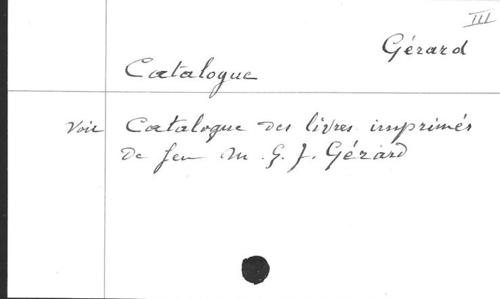 III
Gérard
Catalogue
Voir Catalogue des livres imprimés
de feu M. G. J. Gérard